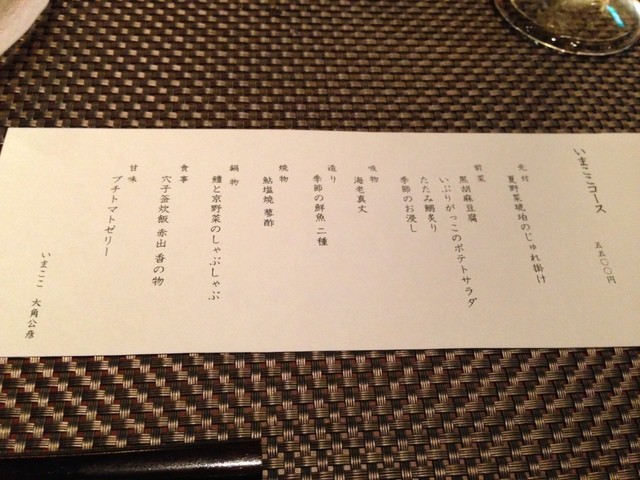 いまここコース
五五〇〇円
先付
夏野菜琥珀のじゅれ掛け
前菜
黒胡麻豆腐
いぶりがっこのポテトサラダ
たたみ鰯炙り
季節のお浸し
吸物
海老真丈
造り
季節の鮮魚 二種
焼物
鮎塩焼 蓼酢
鍋物
鱧と京野菜のしゃぶしゃぶ
食事
穴子釜炊飯 赤出 香の物
甘味
プチトマトゼリー
いまここ 大角公彦